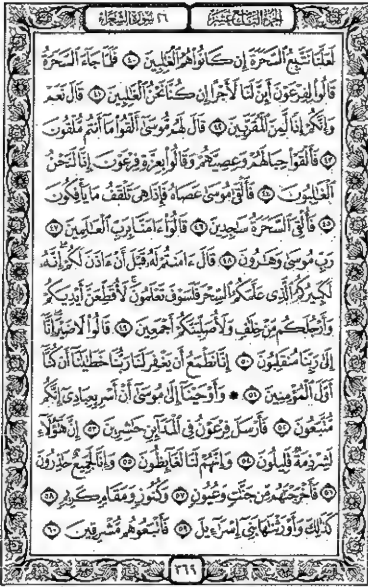 الجزء التاسع عشر ٢٦ سورة الشعراء
لَعَلَّنَا نَتَّبِعُ السَّحَرَةَ إِن كَانُوا هُمُ الْغَالِبِينَ ٤٠ فَلَمَّا جَاءَ السَّحَرَةُ
قَالُوا لِفِرْعَوْنَ أَئِنَّ لَنَا لَأَجْرًا إِن كُنَّا نَحْنُ الْغَالِبِينَ ٤١ قَالَ نَعَمْ
وَإِنَّكُمْ إِذًا لَّمِنَ الْمُقَرَّبِينَ ٤٢ قَالَ لَهُم مُّوسَىٰ أَلْقُوا مَا أَنتُم مُّلْقُونَ
٤٣ فَأَلْقَوْا حِبَالَهُمْ وَعِصِيَّهُمْ وَقَالُوا بِعِزَّةِ فِرْعَوْنَ إِنَّا لَنَحْنُ
الْغَالِبُونَ ٤٤ فَأَلْقَىٰ مُوسَىٰ عَصَاهُ فَإِذَا هِيَ تَلْقَفُ مَا يَأْفِكُونَ
٤٥ فَأُلْقِيَ السَّحَرَةُ سَاجِدِينَ ٤٦ قَالُوا آمَنَّا بِرَبِّ الْعَالَمِينَ ٤٧
رَبِّ مُوسَىٰ وَهَارُونَ ٤٨ قَالَ آمَنتُمْ لَهُ قَبْلَ أَنْ آذَنَ لَكُمْ إِنَّهُ
لَكَبِيرُكُمُ الَّذِي عَلَّمَكُمُ السِّحْرَ فَلَسَوْفَ تَعْلَمُونَ لَأُقَطِّعَنَّ أَيْدِيَكُمْ
وَأَرْجُلَكُم مِّنْ خِلَافٍ وَلَأُصَلِّبَنَّكُمْ أَجْمَعِينَ ٤٩ قَالُوا لَا ضَيْرَ إِنَّا
إِلَىٰ رَبِّنَا مُنقَلِبُونَ ٥٠ إِنَّا نَطْمَعُ أَن يَغْفِرَ لَنَا رَبُّنَا خَطَايَانَا أَن كُنَّا
أَوَّلَ الْمُؤْمِنِينَ ٥١ * وَأَوْحَيْنَا إِلَىٰ مُوسَىٰ أَنْ أَسْرِ بِعِبَادِي إِنَّكُم
مُّتَّبَعُونَ ٥٢ فَأَرْسَلَ فِرْعَوْنُ فِي الْمَدَائِنِ حَاشِرِينَ ٥٣ إِنَّ هَٰؤُلَاءِ
لَشِرْذِمَةٌ قَلِيلُونَ ٥٤ وَإِنَّهُمْ لَنَا لَغَائِظُونَ ٥٥ وَإِنَّا لَجَمِيعٌ حَاذِرُونَ
٥٦ فَأَخْرَجْنَاهُم مِّن جَنَّاتٍ وَعُيُونٍ ٥٧ وَكُنُوزٍ وَمَقَامٍ كَرِيمٍ ٥٨
كَذَٰلِكَ وَأَوْرَثْنَاهَا بَنِي إِسْرَائِيلَ ٥٩ فَأَتْبَعُوهُم مُّشْرِقِينَ ٦٠
٣٦٩